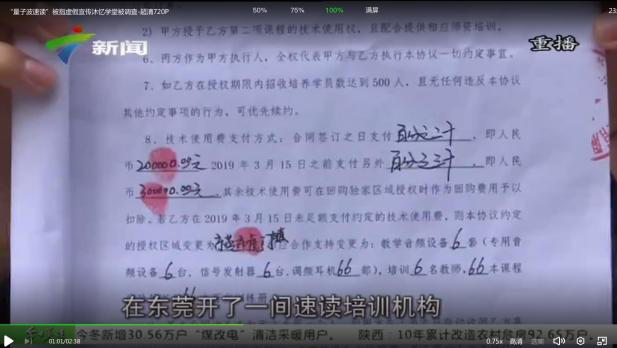 "量子波速读"被指虚假宣传沐忆学堂被调查-超清720P
50% 75% 100% 满屏
23
新闻
重播
2）甲方授予乙方第二项课程的技术使用权，且配合提供相应师资培训。
6、丙方作为甲方执行人，全权代表甲方与乙方执行本协议一切约定事宜。
7、如乙方在授权期限内招收培养学员数达到 500 人，且无任何违反本协议
其他约定事项的行为，可优先续约。
8、技术使用费支付方式：合同签订之日支付 百分之二十，即人民
币 200000.00元 2019 年 3 月 15 日之前支付另外 百分之三十，即人民
币 300000.00元，其余技术使用费可在回购独家区域授权时作为回购费用予以
扣除。若乙方在 2019 年 3 月 15 日未足额支付约定的技术使用费，则本协议约定
的授权区域变更为 合作支持变更为：教学音频设备 6 套（专用音
频设备 6 台，信号发射器 6 台，调频耳机 66 部），培训 6 名教师，66 本课程
在东莞开了一间速读培训机构
今冬新增30.56万户"煤改电"清洁采暖用户。 陕西：10年累计改造农村危房92.65万户。
01:01/02:38
0.75x 超清 选集